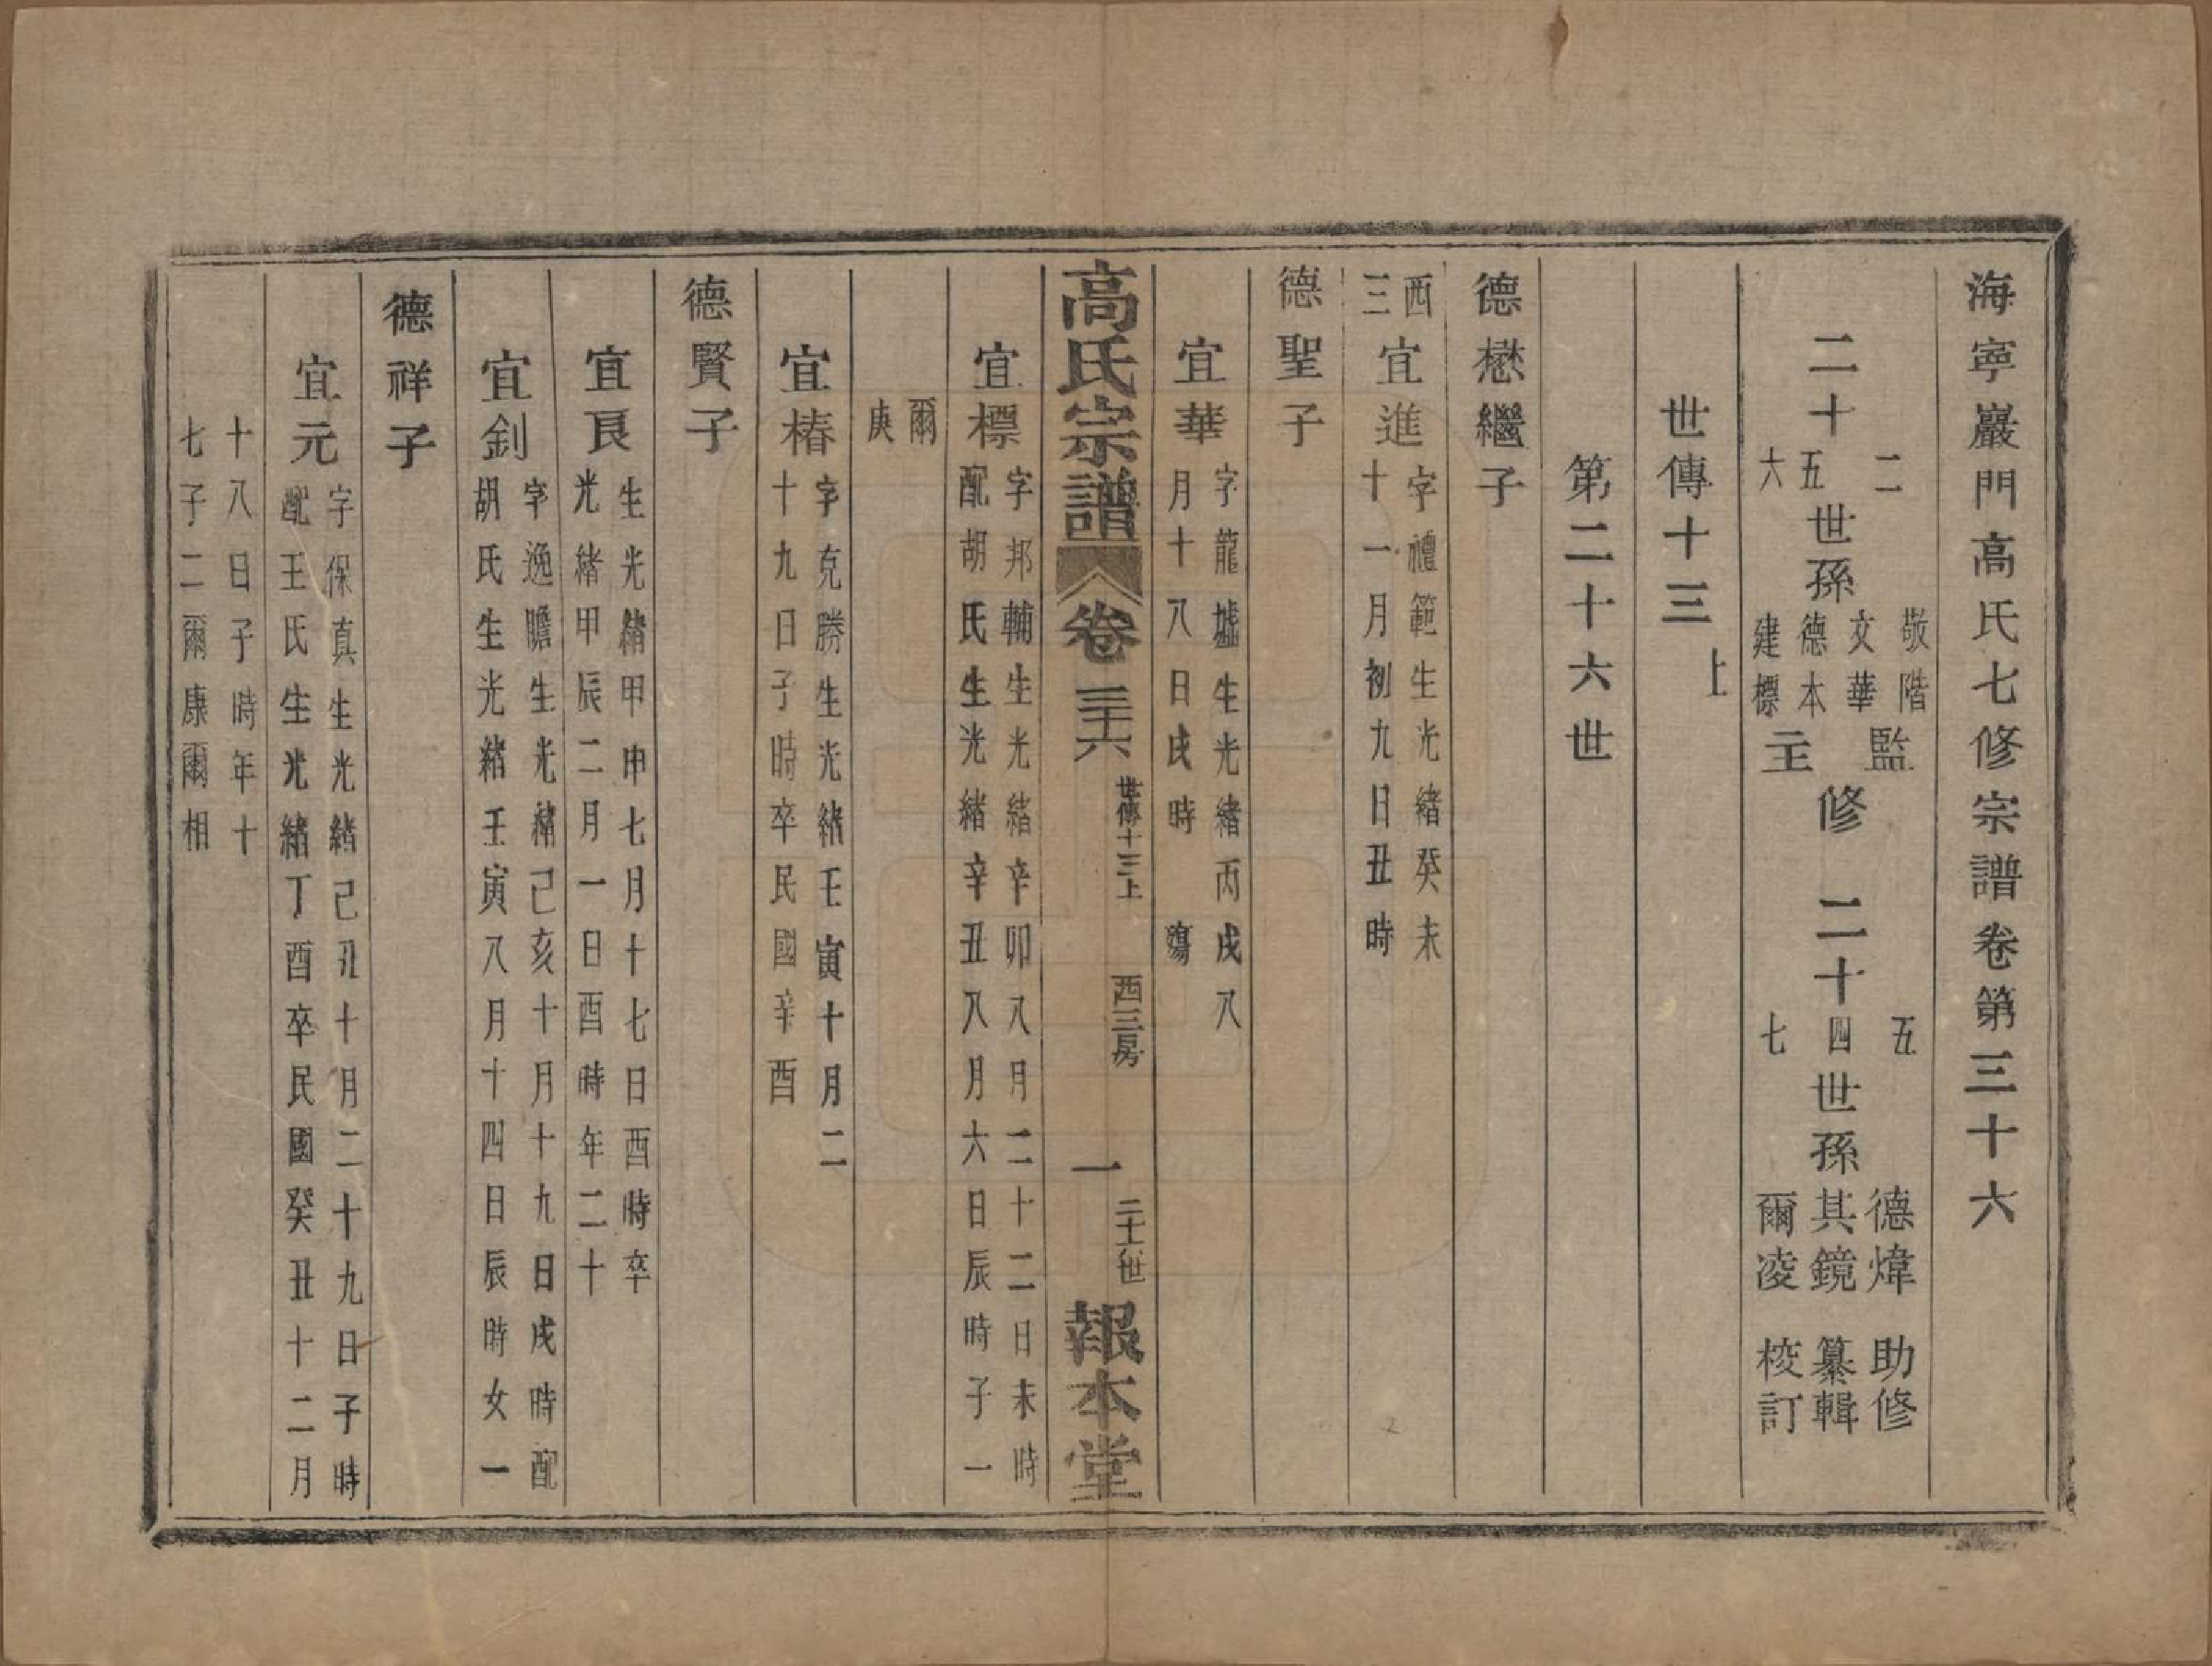 海寧巖門高氏七修宗譜卷第三十六
二十二五六世孫敬階文華德本建標監主修 二十五四七世孫德煒其鏡爾凌助修纂輯校訂
世傳十三上
第二十六世
德懋繼子
西三宜進字禮範生光緒癸未
十一月初九日丑時
德聖子
宜華字龍墟生光緒丙戌八
月十八日戌時 殤
高氏宗譜 卷三十六 世傳十三上 西三房 一 二十六世 報本堂
宜標字邦輔生光緒辛卯八月二十二日未時
配胡氏生光緒辛丑八月六日辰時子一
爾
庚
宜椿字克勝生光緒壬寅十月二
十九日子時卒民國辛酉
德賢子
宜良生光緒甲申七月十七日酉時卒
光緒甲辰二月一日酉時年二十
宜釗字逸瞻生光緒己亥十月十九日戌時配
胡氏生光緒壬寅八月十四日辰時女一
德祥子
宜元字保真生光緒己丑十月二十九日子時
配王氏生光緒丁酉卒民國癸丑十二月
十八日子時年十
七子二爾康爾相